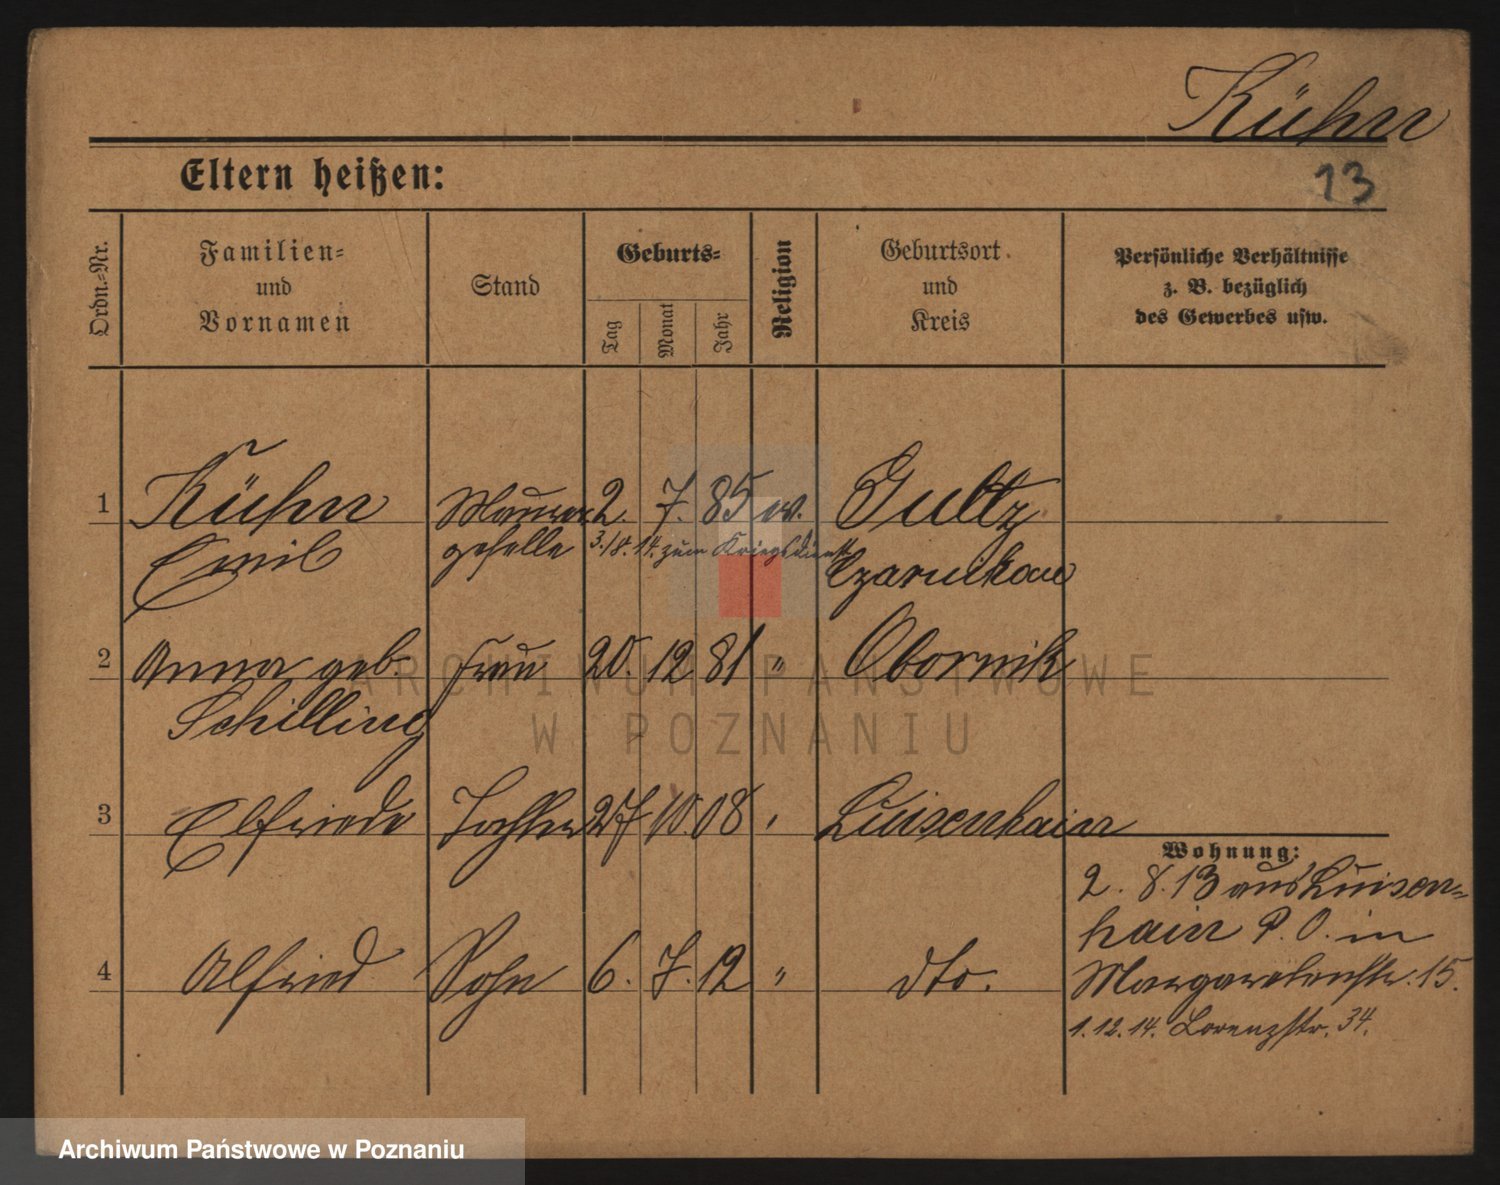 Kühn
Eltern heißen:
13
Ordn.-Nr.
Familien-
und
Vornamen
Stand
Geburts-
Tag
Monat
Jahr
Religion
Geburtsort
und
Kreis
Persönliche Verhältnisse
z. B. bezüglich
des Gewerbes usw.
1 Kühn Maurer 2. 7. 85 ev. Gultz
Emil geselle 3./8. 14. zum Kriegsdienst Czarnikau
2 Anna geb. Frau 20. 12 81 " Obornik
Schilling
3 Elfriede Tochter 27 10. 08 " Luisenhain
Wohnung:
2. 8. 13 aus Luisen-
hain P. O. in
4 Alfried Sohn 6. 7. 12 " dto. Margaretenstr. 15.
1. 12. 14. Lorenzstr. 34.
ARCHIWUM PAŃSTWOWE
W POZNANIU
Archiwum Państwowe w Poznaniu